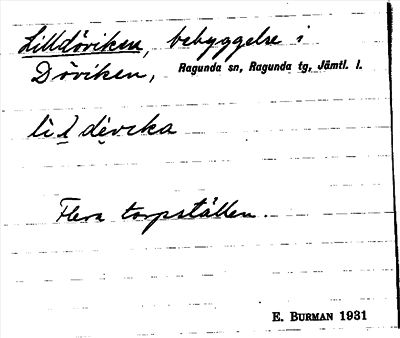 Lilldöviken, bebyggelse i
Döviken, Ragunda sn, Ragunda tg, Jämtl. l.
lil dèvka
Flera torpställen.
E. BURMAN 1931